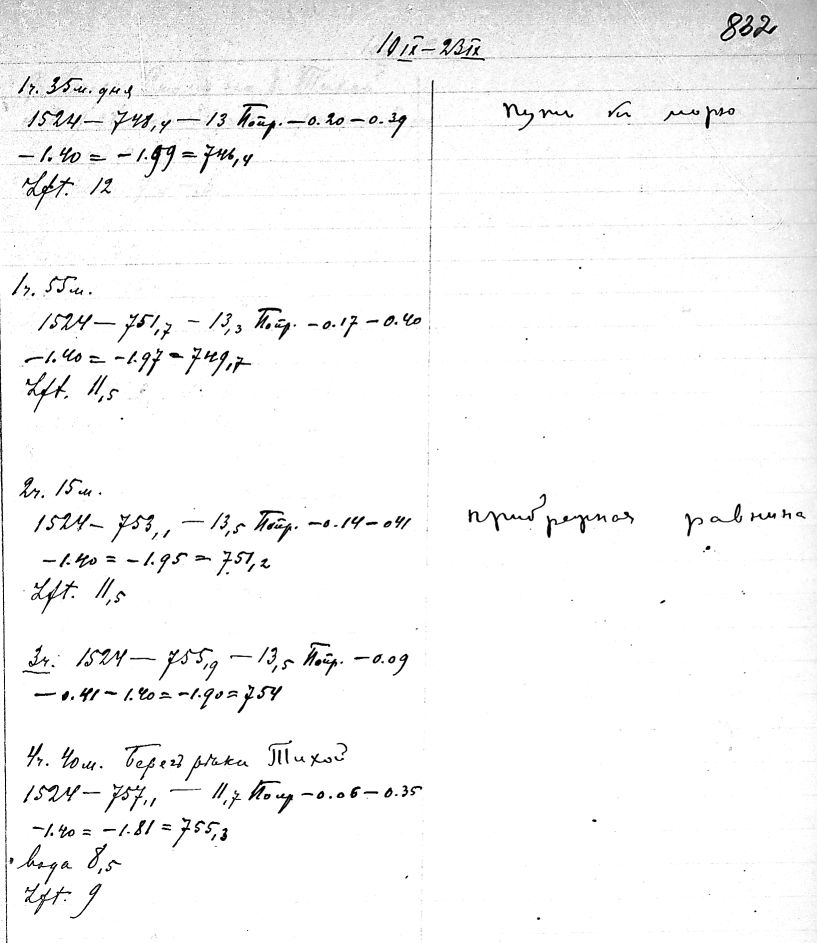 832
10 IX – 23 IX
1ч. 35м. дня
1524 – 748,4 – 13 Попр. – 0.20 – 0.39
– 1.40 = – 1.99 = 746,4
Lft. 12
Пути къ морю
1ч. 55м.
1524 – 751,7 – 13,3 Попр. – 0.17 – 0.40
– 1.40 = – 1.97 = 749,7
Lft. 11,5
2ч. 15м.
1524 – 753,1 – 13,5 Попр. – 0.14 – 041
– 1.40 = – 1.95 = 751,2
Lft. 11,5
прибрежная равнина
3ч. 1524 – 755,9 – 13,5 Попр. – 0.09
– 0.41 – 1.40 = – 1.90 = 754
4ч. 40м. Берегъ рѣки Тихой
1524 – 757,1 – 11,7 Попр – 0.06 – 0.35
– 1.40 = – 1.81 = 755,3
вода 8,5
Lft. 9